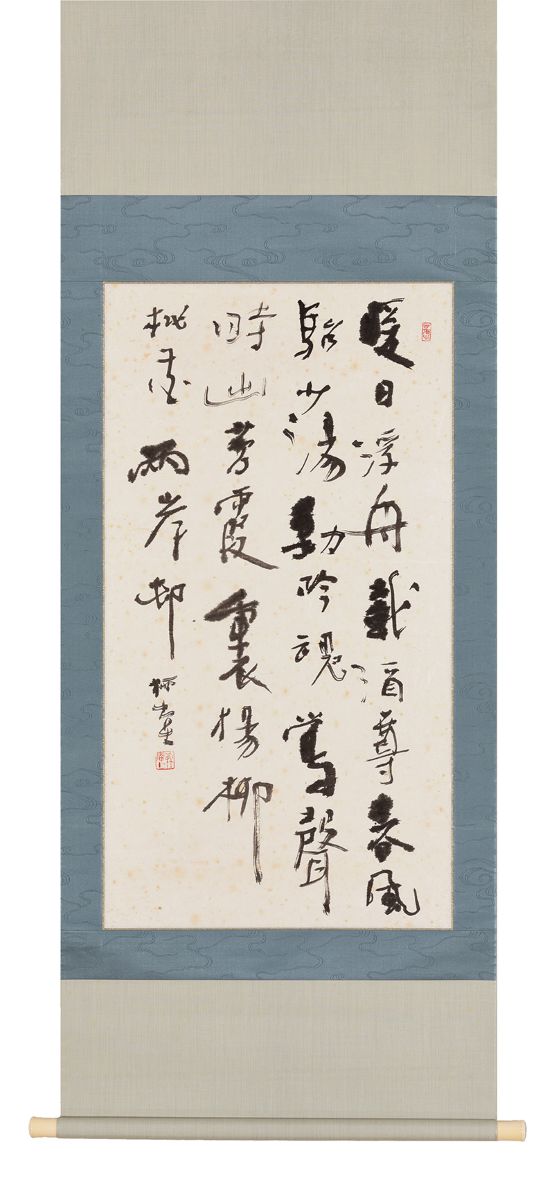 暖日浮舟載酒尊春風
駘蕩動吟魂鶯聲
時出芳霞裏楊柳
桃花兩岸邨